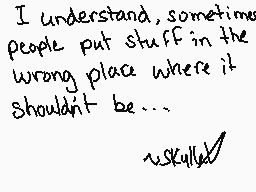 I understand, sometimes
people put stuff in the
wrong place where it
shouldn't be...
~Skulled